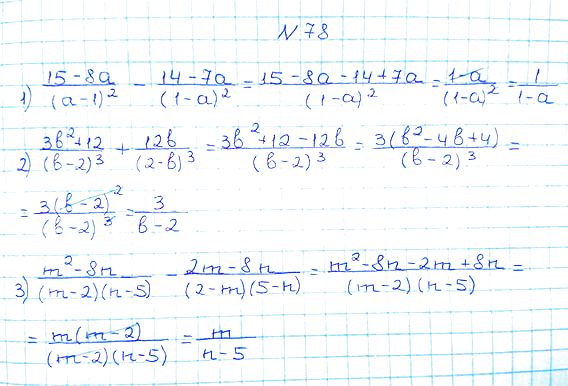 N78
1) (15-8a)/(a-1)² - (14-7a)/(1-a)² = (15-8a-14+7a)/(1-a)² = (1-a)/(1-a)² = 1/(1-a)
2) (3в²+12)/(в-2)³ + (12в)/(2-в)³ = (3в²+12-12в)/(в-2)³ = (3(в²-4в+4))/(в-2)³ =
= (3(в-2)²)/(в-2)³ = 3/(в-2)
3) (m²-8n)/((m-2)(n-5)) - (2m-8n)/((2-m)(5-n)) = (m²-8n-2m+8n)/((m-2)(n-5)) =
= (m(m-2))/((m-2)(n-5)) = m/(n-5)